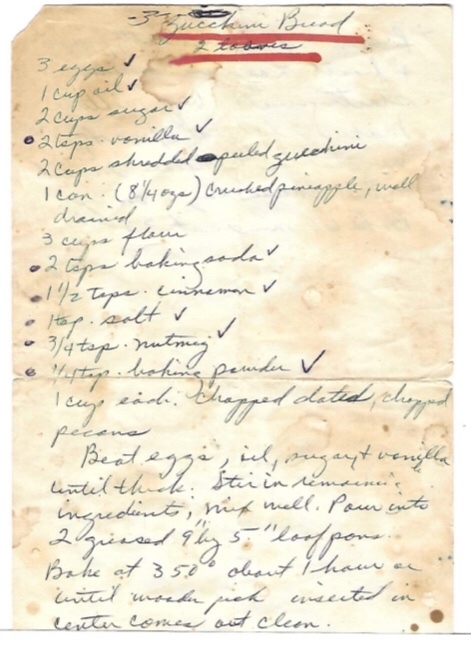 Zucchini Bread
2 loaves
3 eggs ✓
1 cup oil ✓
2 cups sugar ✓
• 2 tsps. vanilla ✓
2 cups shredded peeled zucchini
1 can. (8 1/4 ozs) crushed pineapple, well
drained
3 cups flour
• 2 tsps baking soda ✓
• 1 1/2 tsps. cinnamon ✓
• 1 tsp. salt ✓
• 3/4 tsp. nutmeg ✓
• 1/4 tsp. baking powder ✓
1 cup each. Chopped dated, chopped
pecans
Beat eggs, oil, sugar, + vanilla
until thick. Stir in remaining
ingredients, mix well. Pour into
2 greased 9" by 5" loaf pans.
Bake at 350° about 1 hour or
until wooden pick inserted in
center comes out clean.